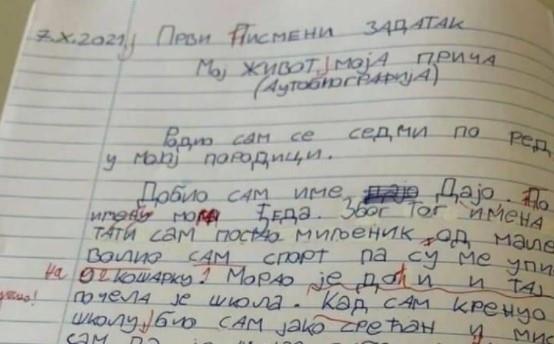 7.X.2021. Први писмени задатак
Мој живот, моја прича
(Аутобиографија)
Родио сам се седми по ред
у мојој породици.
Добио сам име Дајо. По
имену мога ђеда. Због тог имена
тати сам постао миљеник од мале
волио сам спорт па су ме упи
на кошарку! Морао је доћи и тај
почела је школа. Кад сам кренуо
школу, био сам јако срећан у
сам